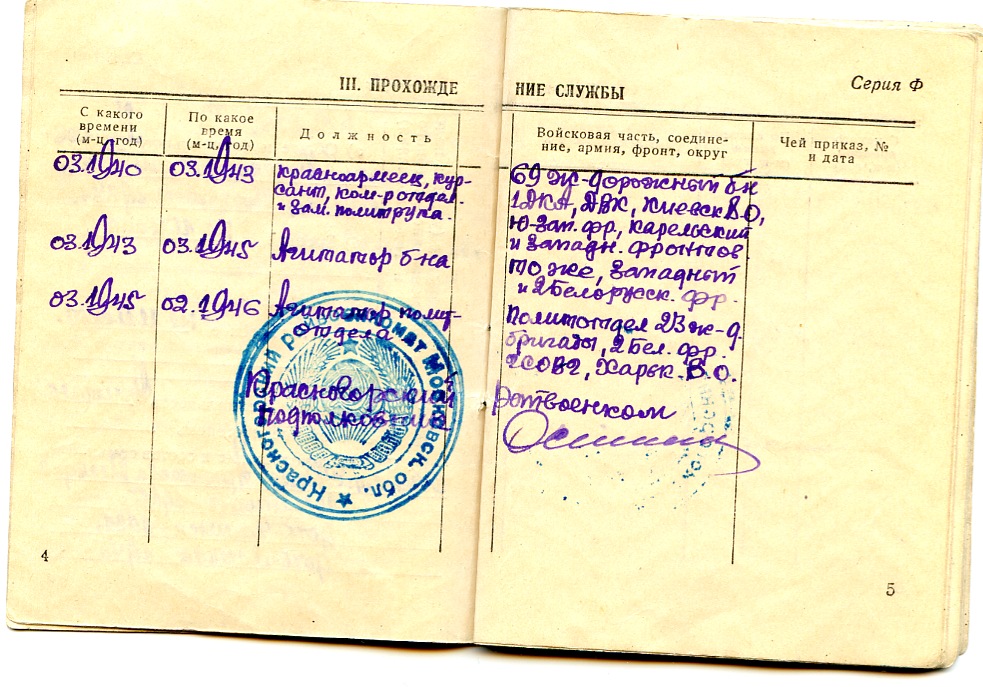 III. ПРОХОЖДЕ НИЕ СЛУЖБЫ
Серия Ф
С какого
времени
(м-ц, год)
По какое
время
(м-ц, год)
Должность
Войсковая часть, соедине-
ние, армия, фронт, округ
Чей приказ, №
и дата
03.1940
03.1943
красноармеец, кур-
сант, ком-р отдел.
и зам. политрука.
69 ж-дорожный б-н
1ДКА, ДВК, Киевск В.О,
Ю-зап. фр, Карельский
и Западн. фронтов
03.1943
03.1945
Агитатор б-на
то же, Западный
и 2 Белорусск. фр.
03.1945
02.1946
Агитатор полит-
отдела
Политотдел 23 ж-д.
бригады, 2 Бел. фр.
Харьк. В.О.
Красногорский
подполковник
Красногорский райвоенкомат Московск. обл.
4
5